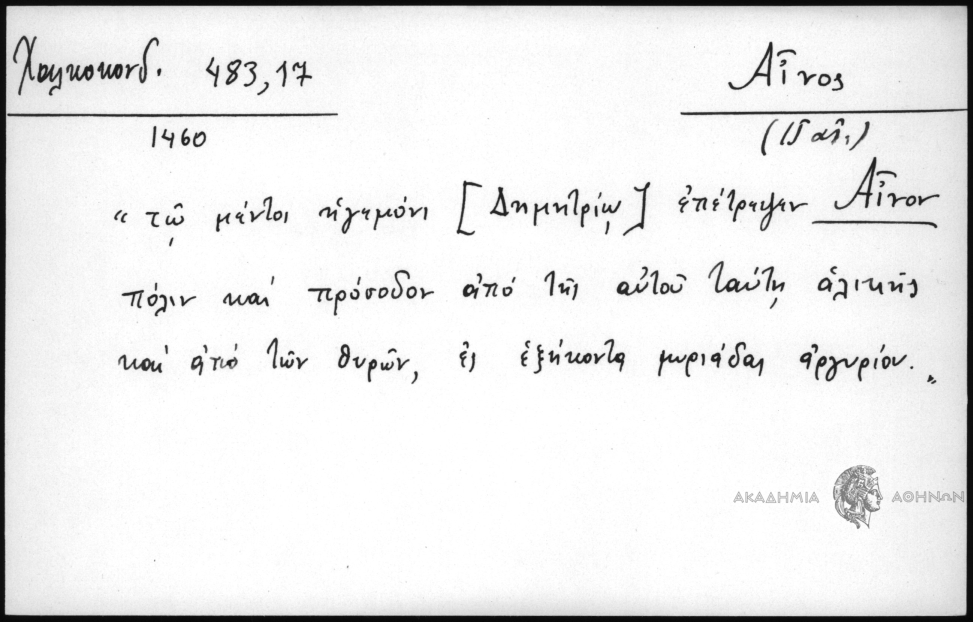 Χαλκοκονδ. 483,17
Αἶνος
1460
« τῷ μέντοι ἡγεμόνι [Δημητρίῳ] ἐπέτρεψεν Αἶνον
πόλιν καὶ πρόσοδον ἀπὸ τῆς αὐτοῦ ταύτῃ ἁλικῆς
καὶ ἀπὸ τῶν θυρῶν, ἐς ἑξήκοντα μυριάδας ἀργυρίου. »
ΑΚΑΔΗΜΙΑ ΑΘΗΝΩΝ